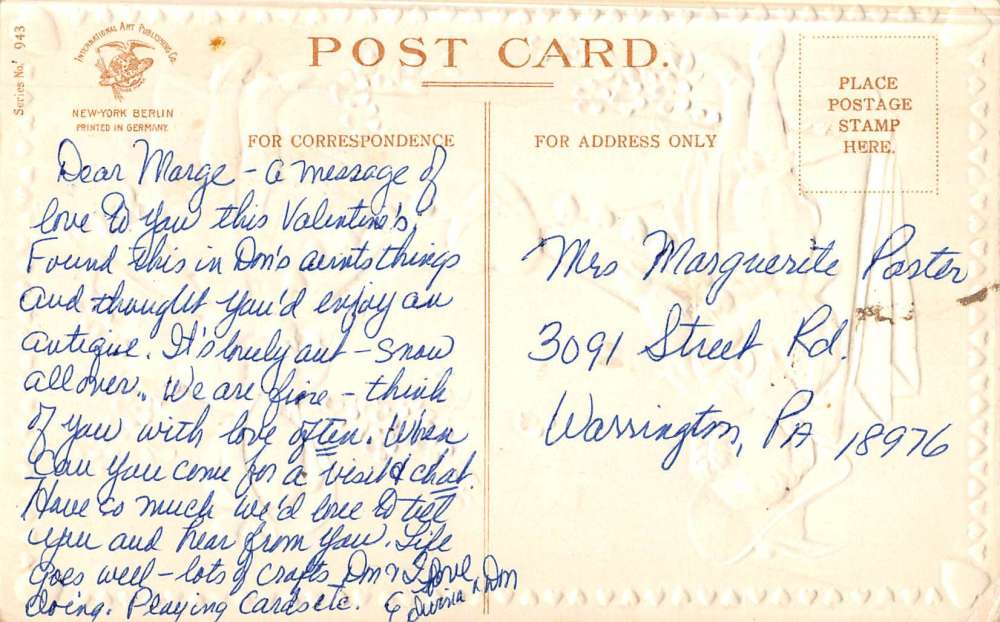 Series No. 943
INTERNATIONAL ART PUBLISHING Co.
NEW-YORK BERLIN
PRINTED IN GERMANY
POST CARD.
PLACE
POSTAGE
STAMP
HERE.
FOR CORRESPONDENCE
FOR ADDRESS ONLY
Dear Marge - a message of
love to you this Valentine's.
Found this in Don's aunts things
and thought you'd enjoy an
antique. It's lovely out - snow
all over. We are fine - think
of you with love often. When
can you come for a visit & chat.
Have so much we'd love to tell
you and hear from you. Life
goes well - lots of crafts Don & I
doing. Playing Cards etc.
Love
& Don
Mrs Marguerite
3091 Street Rd.
Warrington, PA 18976